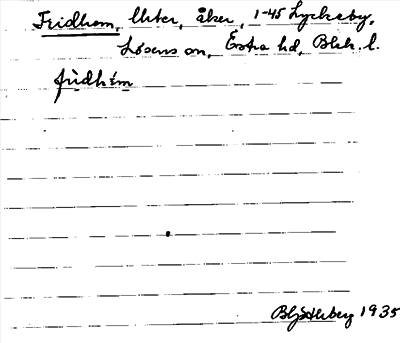 Fridhem, Urker, åker, 1-45 Lyckeby,
Lösens sn, Östra hd, Blek. l.
fridhem
1935